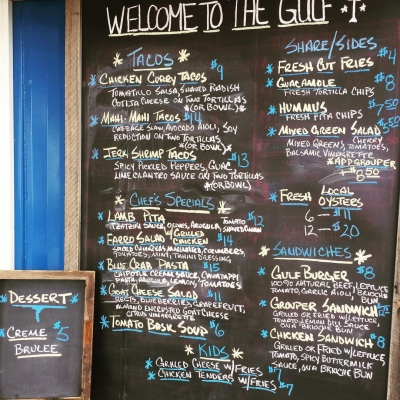 WELCOME TO THE GULF
TACOS
CHICKEN CURRY TACOS $9
TOMATILLO SALSA, SHAVED RADISH
COTIJA CHEESE ON TWO TORTILLAS
*(OR BOWL)*
MAHI-MAHI TACOS $14
CABBAGE SLAW, AVOCADO AIOLI, SOY
REDUCTION ON TWO TORTILLAS
*(OR BOWL)*
JERK SHRIMP TACOS $13
SPICY PICKLED PEPPERS, GUAC
LIME CILANTRO SAUCE ON TWO TORTILLAS
*(OR BOWL)*
CHEFS SPECIALS
LAMB PITA $12
TZATZIKI SAUCE, OLIVES, ARUGULA, TOMATO
SHAVED ONION
FARRO SALAD W/ GRILLED CHICKEN $14
SPICED CHICKPEAS, MARINATED CUCUMBERS,
TOMATOES, MINT, TAHINI DRESSING
BLUE CRAB PASTA $15
CHIPOTLE CREAM SAUCE, CAVATAPPI
PASTA, ARUGULA, LEMON, TOMATOES
GOAT CHEESE SALAD $11
BEETS, BLUEBERRIES, GRAPEFRUIT,
ALMOND ENCRUSTED GOAT CHEESE
CITRUS VINAIGRETTE
TOMATO BASIL SOUP $6
KIDS
GRILLED CHEESE W/ FRIES $7
CHICKEN TENDERS W/ FRIES $7
SHARE/SIDES
FRESH CUT FRIES $4
GUACAMOLE $8
FRESH TORTILLA CHIPS
HUMMUS $7.50
FRESH PITA CHIPS
MIXED GREEN SALAD $5.50
MIXED GREENS, CHERRY TOMATOES,
BALSAMIC VINAIGRETTE
*ADD GROUPER
+ $8.50
FRESH LOCAL OYSTERS
6 — $11
12 — $20
SANDWICHES
GULF BURGER $8
100% NATURAL BEEF, LETTUCE
TOMATO, GARLIC AIOLI, BRIOCHE BUN
GROUPER SANDWICH $12
GRILLED OR FRIED W/ LETTUCE,
TOMATO, LEMON DILL SAUCE
ON A BRIOCHE BUN
CHICKEN SANDWICH $8
GRILLED OR FRIED W/ LETTUCE,
TOMATO, SPICY BUTTERMILK
SAUCE, ON A BRIOCHE BUN
DESSERT
CREME BRULEE $5